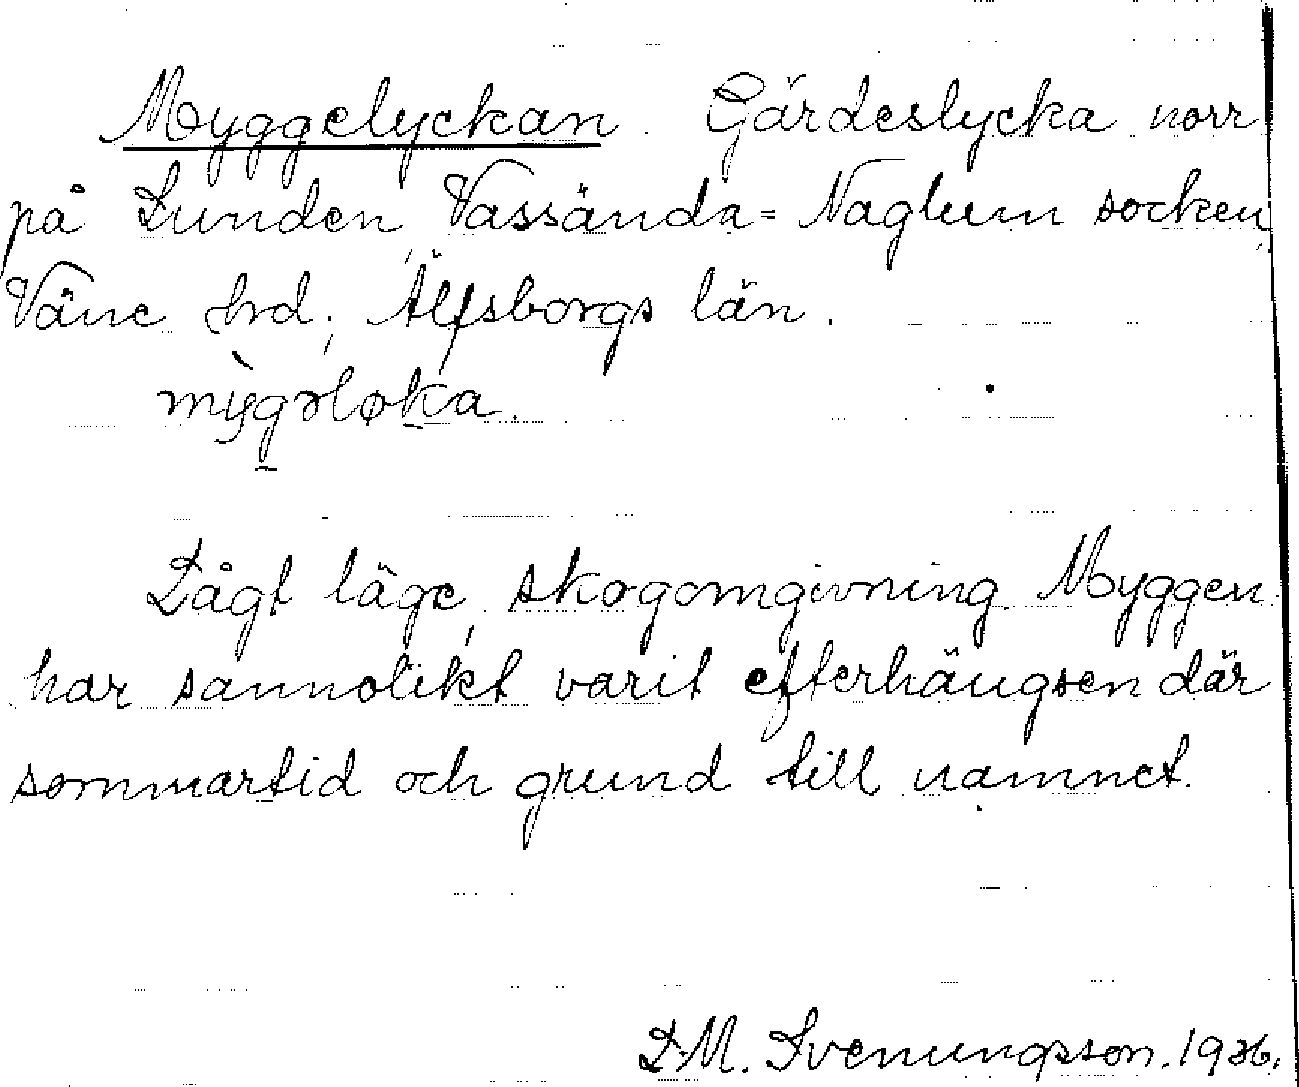 Myggelyckan. Gärdeslycka norr
på Lunden, Vassända-Naglum socken,
Väne hrd, Älfsborgs län.
mỳgəløka.
Lågt läge, skogomgivning. Myggen
har sannolikt varit efterhängsen där
sommartid och grund till namnet.
L.M. Svenungsson. 1926.